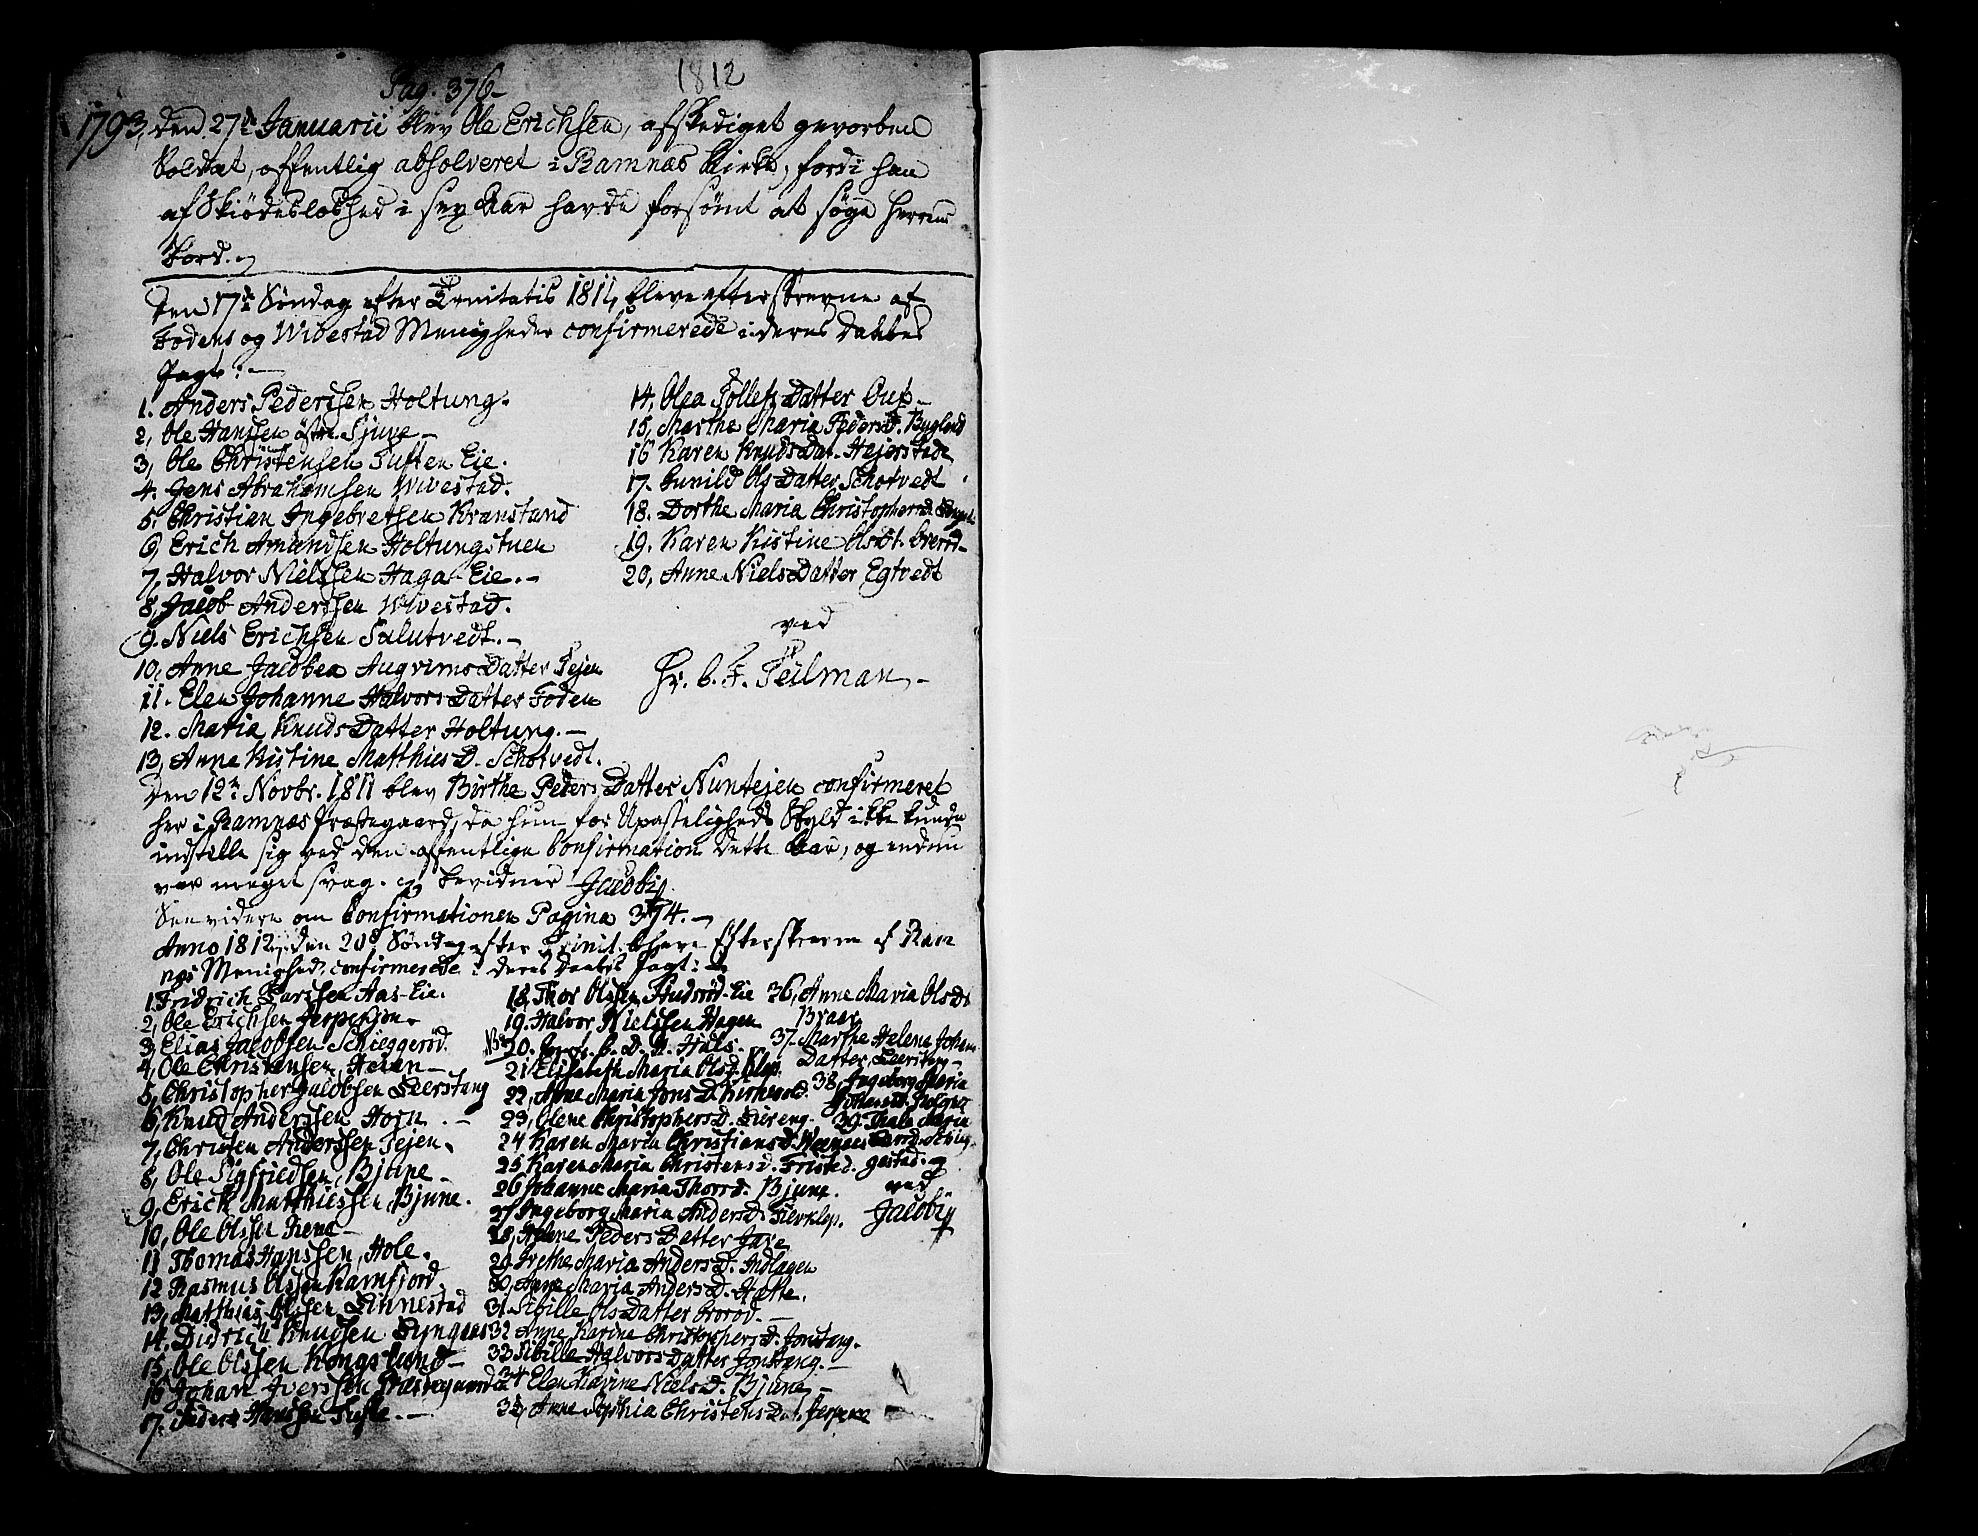 Pag. 376
1812
1793, den 27de Januarii blev Ole Erichsen, afskediget gevorben
Soldat, offentlig absolveret i Ramnæs Kirke, fordi han
af Skiødesløshed i sex Aar havde forsømt at søge Herrens
Bord.
Den 17de Søndag efter Trinitatis 1811, bleve efterskrevne af
Fodens og Wivestad Menigheder confirmerede i deres Daabes
Pagt:
1. Anders Pederssen Holtung.
2, Ole Hanssen østre Sjuve
3, Ole Christensen Tuften Eie.
4. Jens Abrahamsen Wivestad.
5. Christian Ingebretsen Kranstand
6, Erich Amundsen Holtungstuen
7, Halvor Nielssen Haga-Eie.
8, Jacob Anderssen Wivestad.
9. Niels Erichsen Salutvedt.
10, Anne Jacobea Augrims Datter Tejen
11. Elen Johanne Halvors Datter Foden
12. Maria Knuds Datter Holtung.
13, Anne Kistine Matthies D. Schotvedt.
14, Olea Tollefs Datter
15, Marthe Maria Peders D. Bugland
16 Karen Knuds Dat. Hejerstade
17. Gunild Ols Datter Schotvedt
18. Dorthe Maria Christophers D.
19. Karen Kistine Ols Dt.
20, Anne Niels Datter Egtvedt
ved
Hr. C. F. Teilman
Den 12te Novbr. 1811 blev Birthe Peders Datter Nuntejen confirmeret
her i Ramnæs Præstegaard, da hun for Upasseligheds Skyld ikke kunde
indstille sig ved den offentlige Confirmation dette Aar, og endnu
var meget svag. bevidner Jacobi
See videre om Confirmationen Pagina 374.
Anno 1812, den 20de Søndag efter Trinit. bleve Efterskrevne af Ram
næs Menighed confirmerede i deres Daabes Pagt:
1. Fridrich Larssen Aas-Eie.
2, Ole Erichsen Jerpekjøn.
3, Elias Jacobsen Schieggerød.
4, Ole Christensen, Heian
5, Christopher Jacobsen Leerstang
6, Knud Anderssen Horn
7, Christen Anderssen Tejen.
8, Ole Sigfriedsen, Bjune
9, Erich Matthiessen, Bjune.
10, Ole Olssen Rene
11 Thomas Hanssen, Hole.
12 Rasmus Olssen Ramfjord
13, Matthias Olssen Linnestad
14. Didrich Knudsen Lyngaas
15, Ole Olssen Kongslund
16 Johan Iverssen Præstegaards
17. Peder Hanssen Tufte.
18, Thor Olssen Studsrød-Eie
19. Halvor Nielssen Hagen
NB 20. C. D. H. Hals.
21 Elisabeth Maria Ols D. Klop
22, Anne Maria Jons D. Kirkerød.
23, Olene Christophers D. Lureng.
24 Karen Maria Christians D.
25 Karen Maria Christens D. Fristed.
26 Johanne Maria Thors D. Bjune.
27 Ingeborg Maria Anders D. Fierklop.
28, Helene Peders Datter Jare
29, Grethe Maria Anders D. Indlagen
30, Anne Maria Anders D. Hotte.
31. Sibille Ols Datter Gorod.
32 Anne Karine Christophers D. Jonstang.
33 Sibille Halvors Datter Jonstang.
34 Elen Karine Niels D. Bjune
35, Anne Sophia Christens Dat. Jerpene
36, Anne Maria Ols D.
Braar
37. Marthe Helene Johans
Datter, Leerstang
38, Ingeborg Maria
39. Thale Maria
gestad.
ved
Jacobi